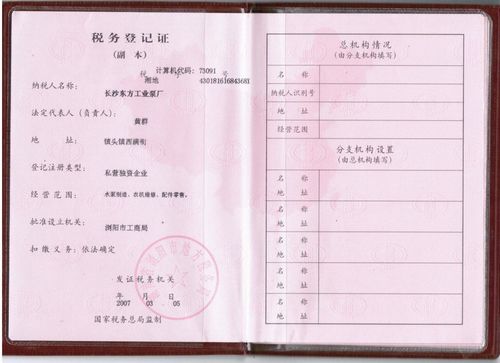 税务登记证
(副 本)
计算机代码: 73091
税 字 号
湘地 430181616843681
纳税人名称:
长沙东方工业泵厂
法定代表人(负责人):
黄群
地 址: 镇头镇西湖街
登记注册类型:
私营独资企业
经 营 范 围: 水泵制造、农机维修、配件零售。
批准设立机关:
浏阳市工商局
扣 缴 义 务: 依法确定
发 证 税 务 机 关
年 月 日
2007 03 05
国家税务总局监制
总机构情况
(由分支机构填写)
名 称
纳税人识别号
地 址
经营范围
分支机构设置
(由总机构填写)
名 称
地 址
名 称
地 址
名 称
地 址
名 称
地 址
名 称
地 址